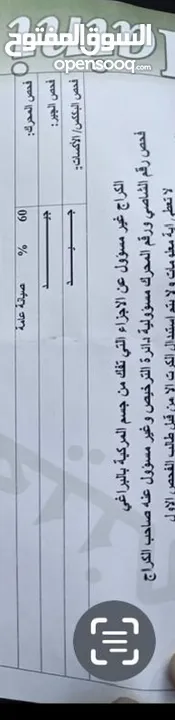 السوق المفتوح
opensooq.com
فحص المحرك: 60 % صيانة عامة
فحص الجير: جيد
فحص البكس/الأكسات: جيد
الكراج غير مسؤول عن الاجزاء التي تفك من جسم المركبة بالبراغي
فحص رقم الشاصي ورقم المحرك مسؤولية دائرة الترخيص وغير مسؤول عنه صاحب الكراج
لا تعطى اية معلومات ولا يتم استبدال الكرت الا من قبل طالب الفحص الاول